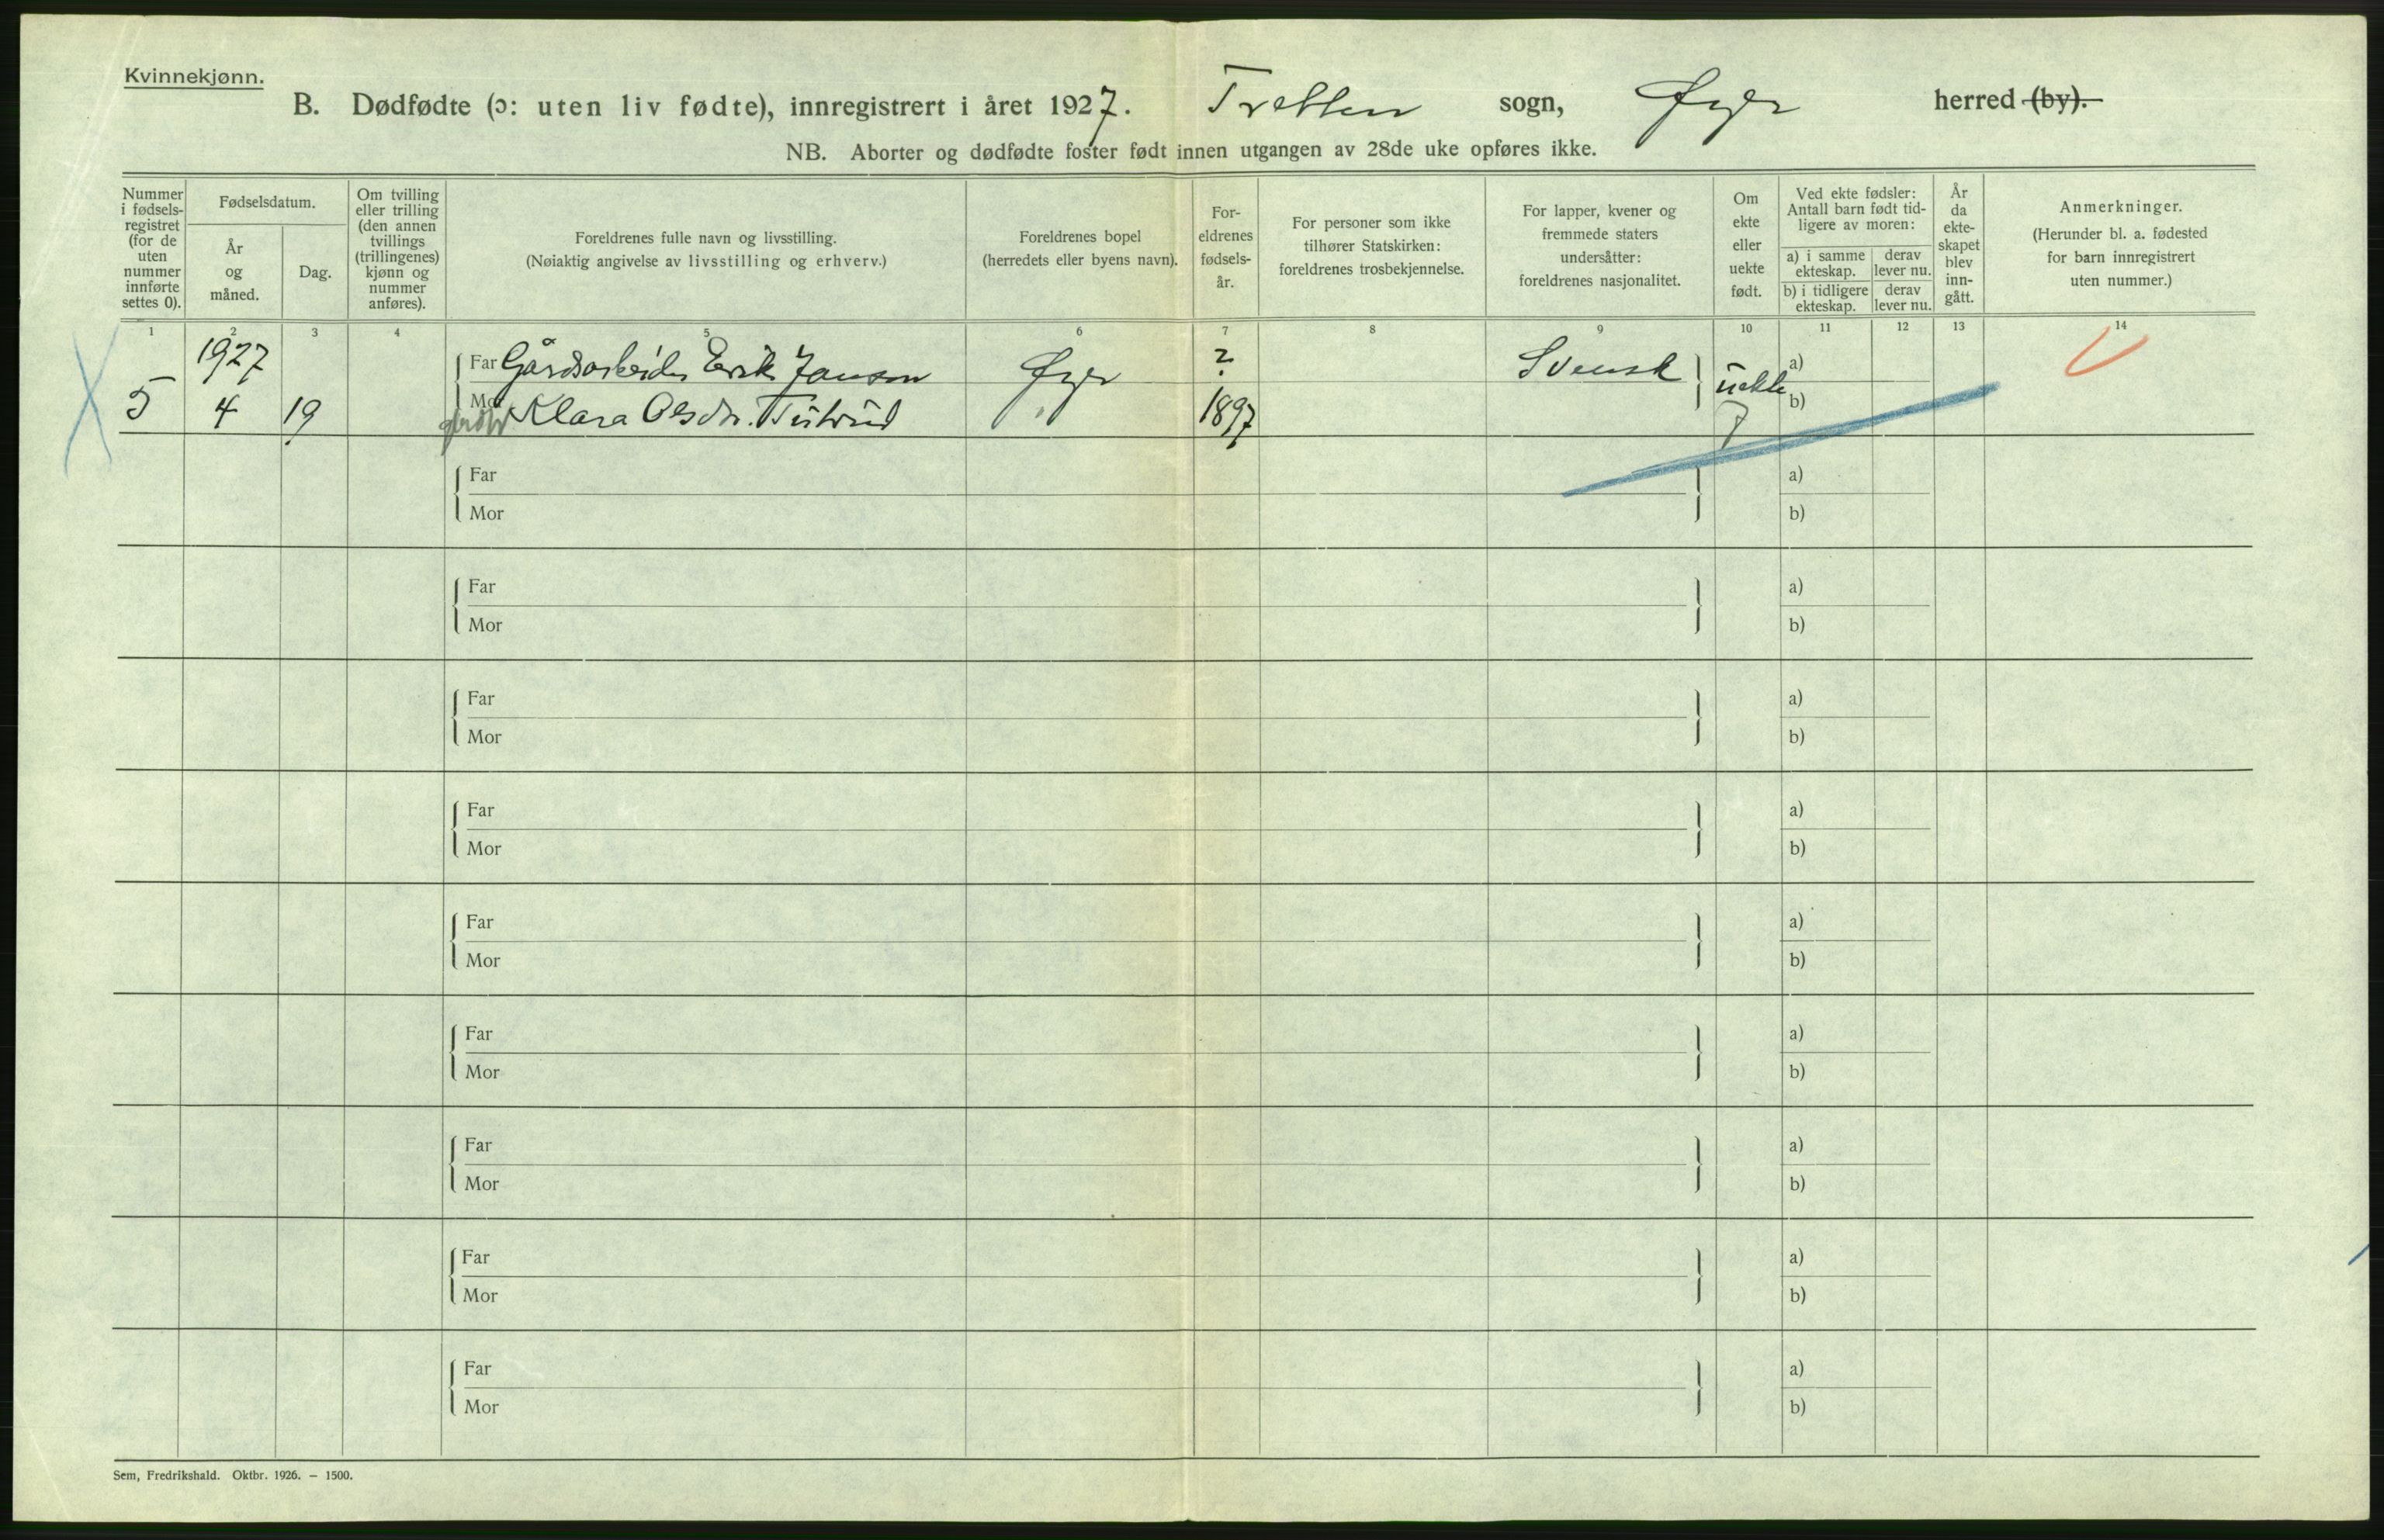 Kvinnekjønn.
B. Dødfødte (ɔ: uten liv fødte), innregistrert i året 1927. Tretten sogn, Øyer herred (by).
NB. Aborter og dødfødte foster født innen utgangen av 28de uke opføres ikke.
Nummer
i fødsels-
registret
(for de
uten
nummer
innførte
settes 0).
Fødselsdatum.
År
og
måned.
Dag.
Om tvilling
eller trilling
(den annen
tvillings
(trillingenes)
kjønn og
nummer
anføres).
Foreldrenes fulle navn og livsstilling.
(Nøiaktig angivelse av livsstilling og erhverv.)
Foreldrenes bopel
(herredets eller byens navn).
For-
eldrenes
fødsels-
år.
For personer som ikke
tilhører Statskirken:
foreldrenes trosbekjennelse.
For lapper, kvener og
fremmede staters
undersåtter:
foreldrenes nasjonalitet.
Om
ekte
eller
uekte
født.
Ved ekte fødsler:
Antall barn født tid-
ligere av moren:
a) i samme
ekteskap.
derav
lever nu.
b) i tidligere
ekteskap.
derav
lever nu.
År
da
ekte-
skapet
blev
inn-
gått.
Anmerkninger.
(Herunder bl. a. fødested
for barn innregistrert
uten nummer.)
1 2 3 4 5 6 7 8 9 10 11 12 13 14
1927 Far Gårdsarbeider Erik Janson Øyer ? Svensk uekte a)
5 4 19 Mor Klara Olsdtr. 1897 b)
Far a)
Mor b)
Far a)
Mor b)
Far a)
Mor b)
Far a)
Mor b)
Far a)
Mor b)
Far a)
Mor b)
Far a)
Mor b)
Far a)
Mor b)
Far a)
Mor b)
Sem, Fredrikshald. Oktbr. 1926. – 1500.